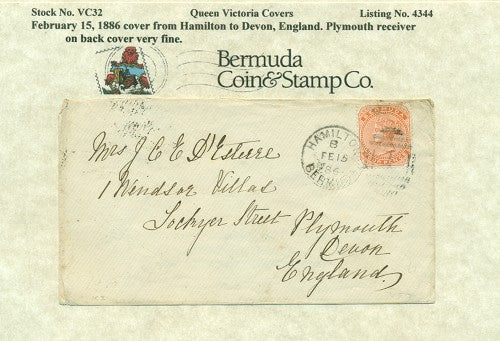 Stock No. VC32 Queen Victoria Covers Listing No. 4344
February 15, 1886 cover from Hamilton to Devon, England. Plymouth receiver
on back cover very fine.
Bermuda
Coin&Stamp Co.
HAMILTON
B
FE 15
86
BERMUDA
Mrs J. C. E. D'Esterre
1 Windsor Villas
Lockyer Street Plymouth
Devon
England.